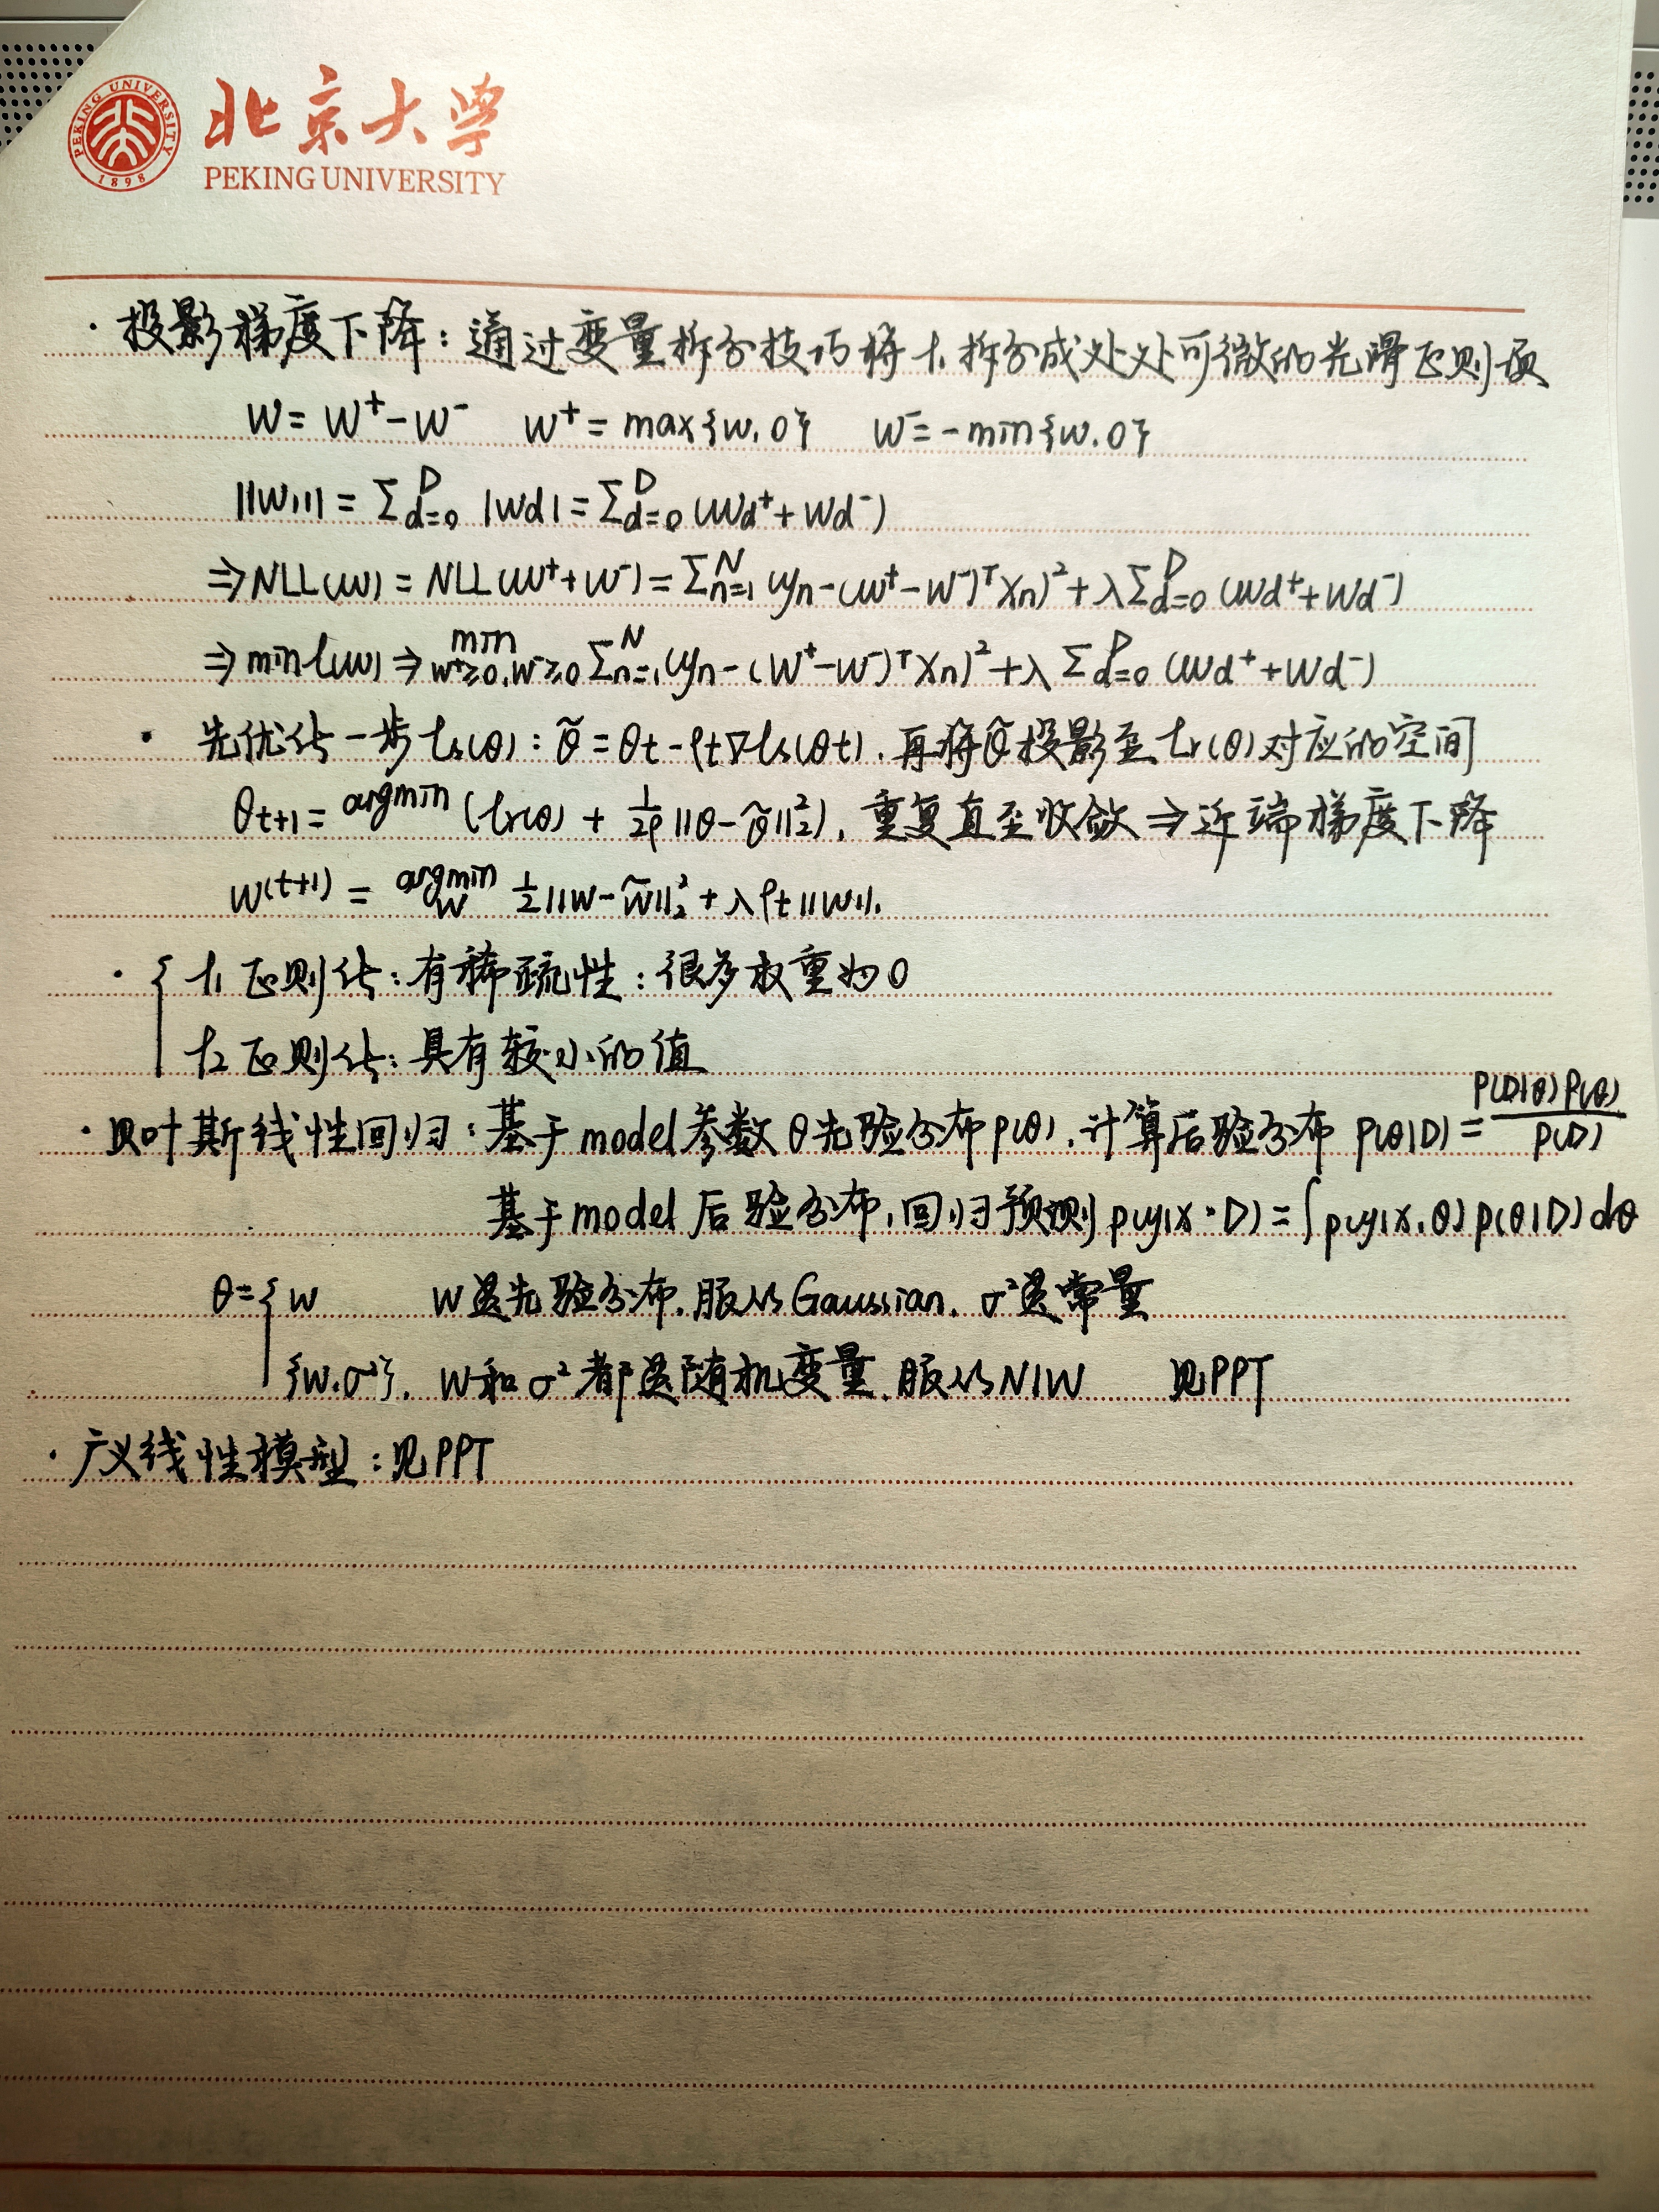 PEKING UNIVERSITY
1898
北京大学
PEKING UNIVERSITY
· 投影梯度下降：通过变量拆分技巧将 ℓ₁ 拆分成处处可微的光滑正则项
W = W⁺ - W⁻ W⁺ = max{w, 0} W⁻ = -min{w, 0}
||W||₁ = Σ_{d=0}^{D} |Wd| = Σ_{d=0}^{D} (Wd⁺ + Wd⁻)
⇒ NLL(W) = NLL(W⁺ + W⁻) = Σ_{n=1}^{N} (yn - (W⁺ - W⁻)ᵀ Xn)² + λ Σ_{d=0}^{D} (Wd⁺ + Wd⁻)
⇒ min ℓ(W) ⇒ min_{W⁺≥0, W⁻≥0} Σ_{n=1}^{N} (yn - (W⁺ - W⁻)ᵀ Xn)² + λ Σ_{d=0}^{D} (Wd⁺ + Wd⁻)
· 先优化一步 ℓs(θ)：θ̃ = θt - ρt∇ℓs(θt), 再将θ̃投影至 ℓr(θ) 对应的空间
θt+1 = argmin (ℓr(θ) + 1/2ρ ||θ - θ̃||₂²), 重复直至收敛 ⇒ 近端梯度下降
W(t+1) = argmin_W 1/2 ||W - W̃||₂² + λρt ||W||₁
· { ℓ₁ 正则化：有稀疏性：很多权重为0
ℓ₂ 正则化：具有较小的值
· 贝叶斯线性回归：基于 model 参数 θ 先验分布 p(θ), 计算后验分布 p(θ|D) = P(D|θ)P(θ)/P(D)
基于 model 后验分布, 回归预测 p(y|x·D) = ∫ p(y|x, θ) p(θ|D) dθ
θ = { w W是先验分布, 服从 Gaussian, σ²是常量
{w, σ²}, W和σ²都是随机变量, 服从NIW 见PPT
· 广义线性模型：见PPT